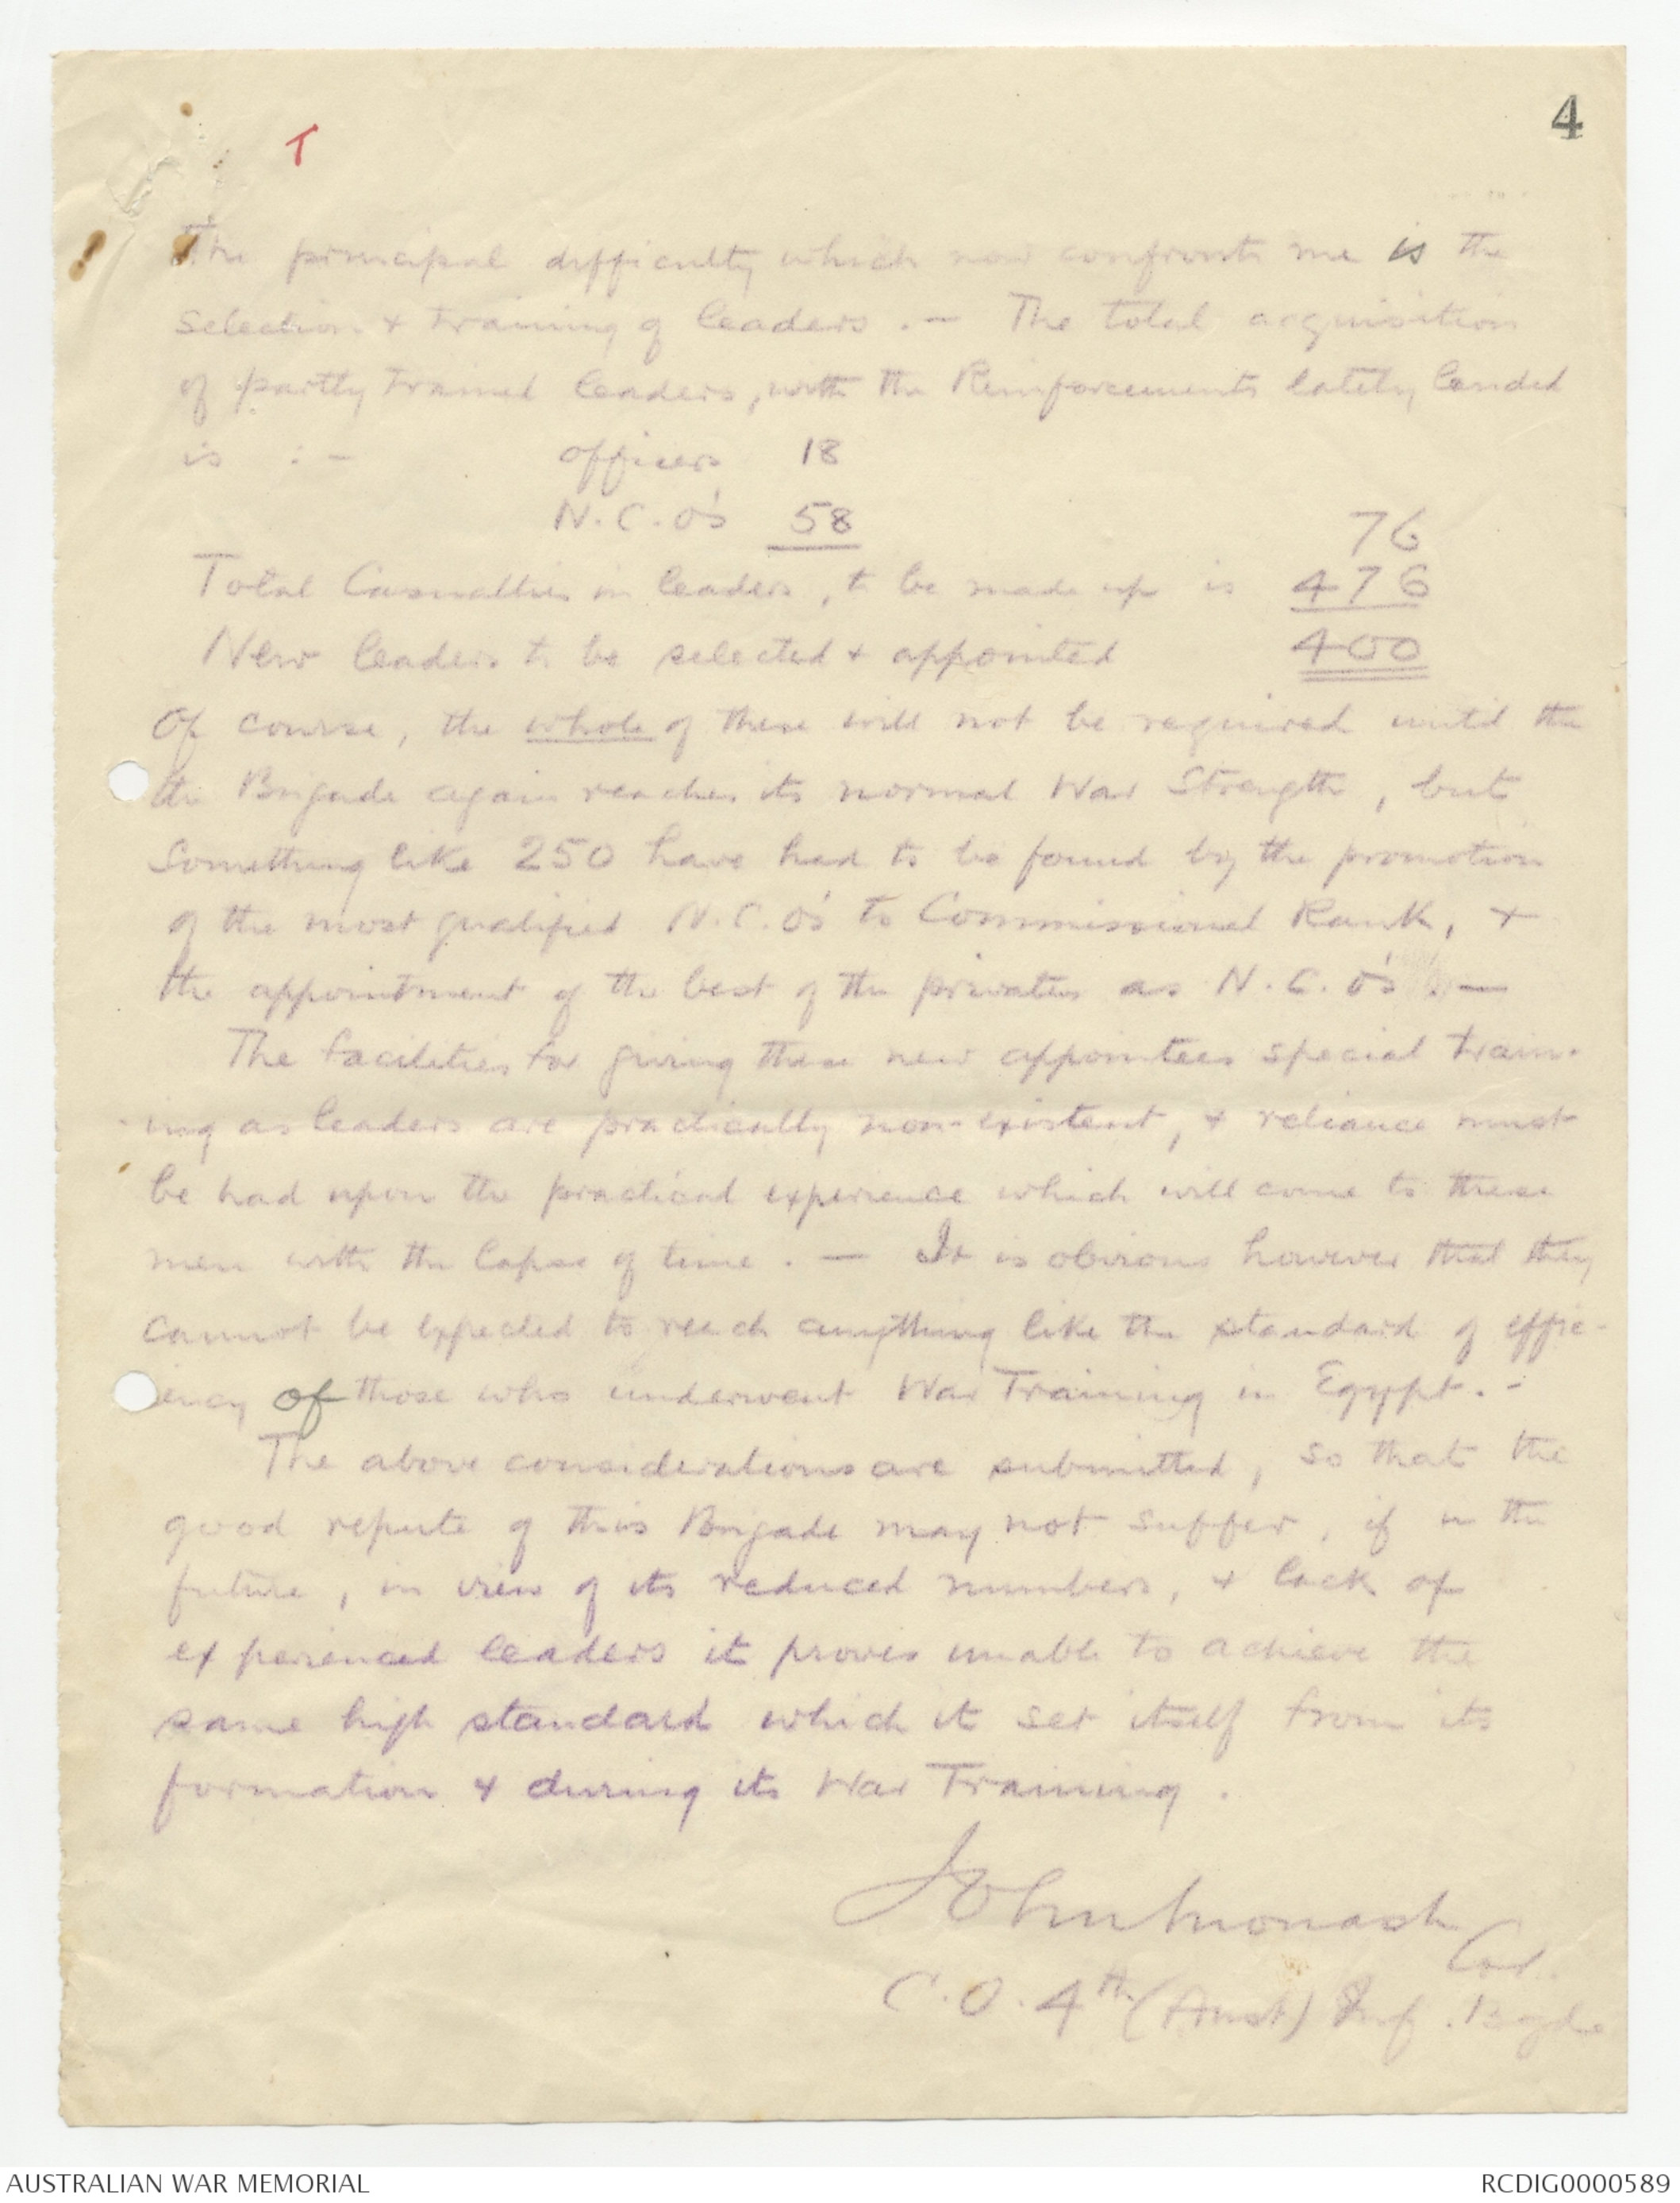 4
T
The principal difficulty which now confronts me is the
selection & training of leaders. — The total acquisition
of partly trained leaders, with the Reinforcements lately landed
is :- officers 18
N.C.O's 58 76
Total Casualties in leaders, to be made up is 476
New leaders to be selected & appointed 400
Of course, the whole of these will not be required until the
the Brigade again reaches its normal War Strength, but
something like 250 have had to be found by the promotion
of the most qualified N.C.O's to Commissioned Rank, &
the appointment of the best of the privates as N.C.O's. —
The facilities for giving these new appointees special train-
ing as leaders are practically non-existent, & reliance must
be had upon the practical experience which will come to these
men with the lapse of time. — It is obvious however that they
cannot be expected to reach anything like the standard of effic-
iency of those who underwent War Training in Egypt. -
The above considerations are submitted, so that the
good repute of this Brigade may not suffer, if in the
future, in view of its reduced numbers, & lack of
experienced leaders it proves unable to achieve the
same high standard which it set itself from its
formation & during its War Training.
John Monash
Col.
C.O. 4th (Aust) Inf. Bgde
AUSTRALIAN WAR MEMORIAL RCDIG0000589